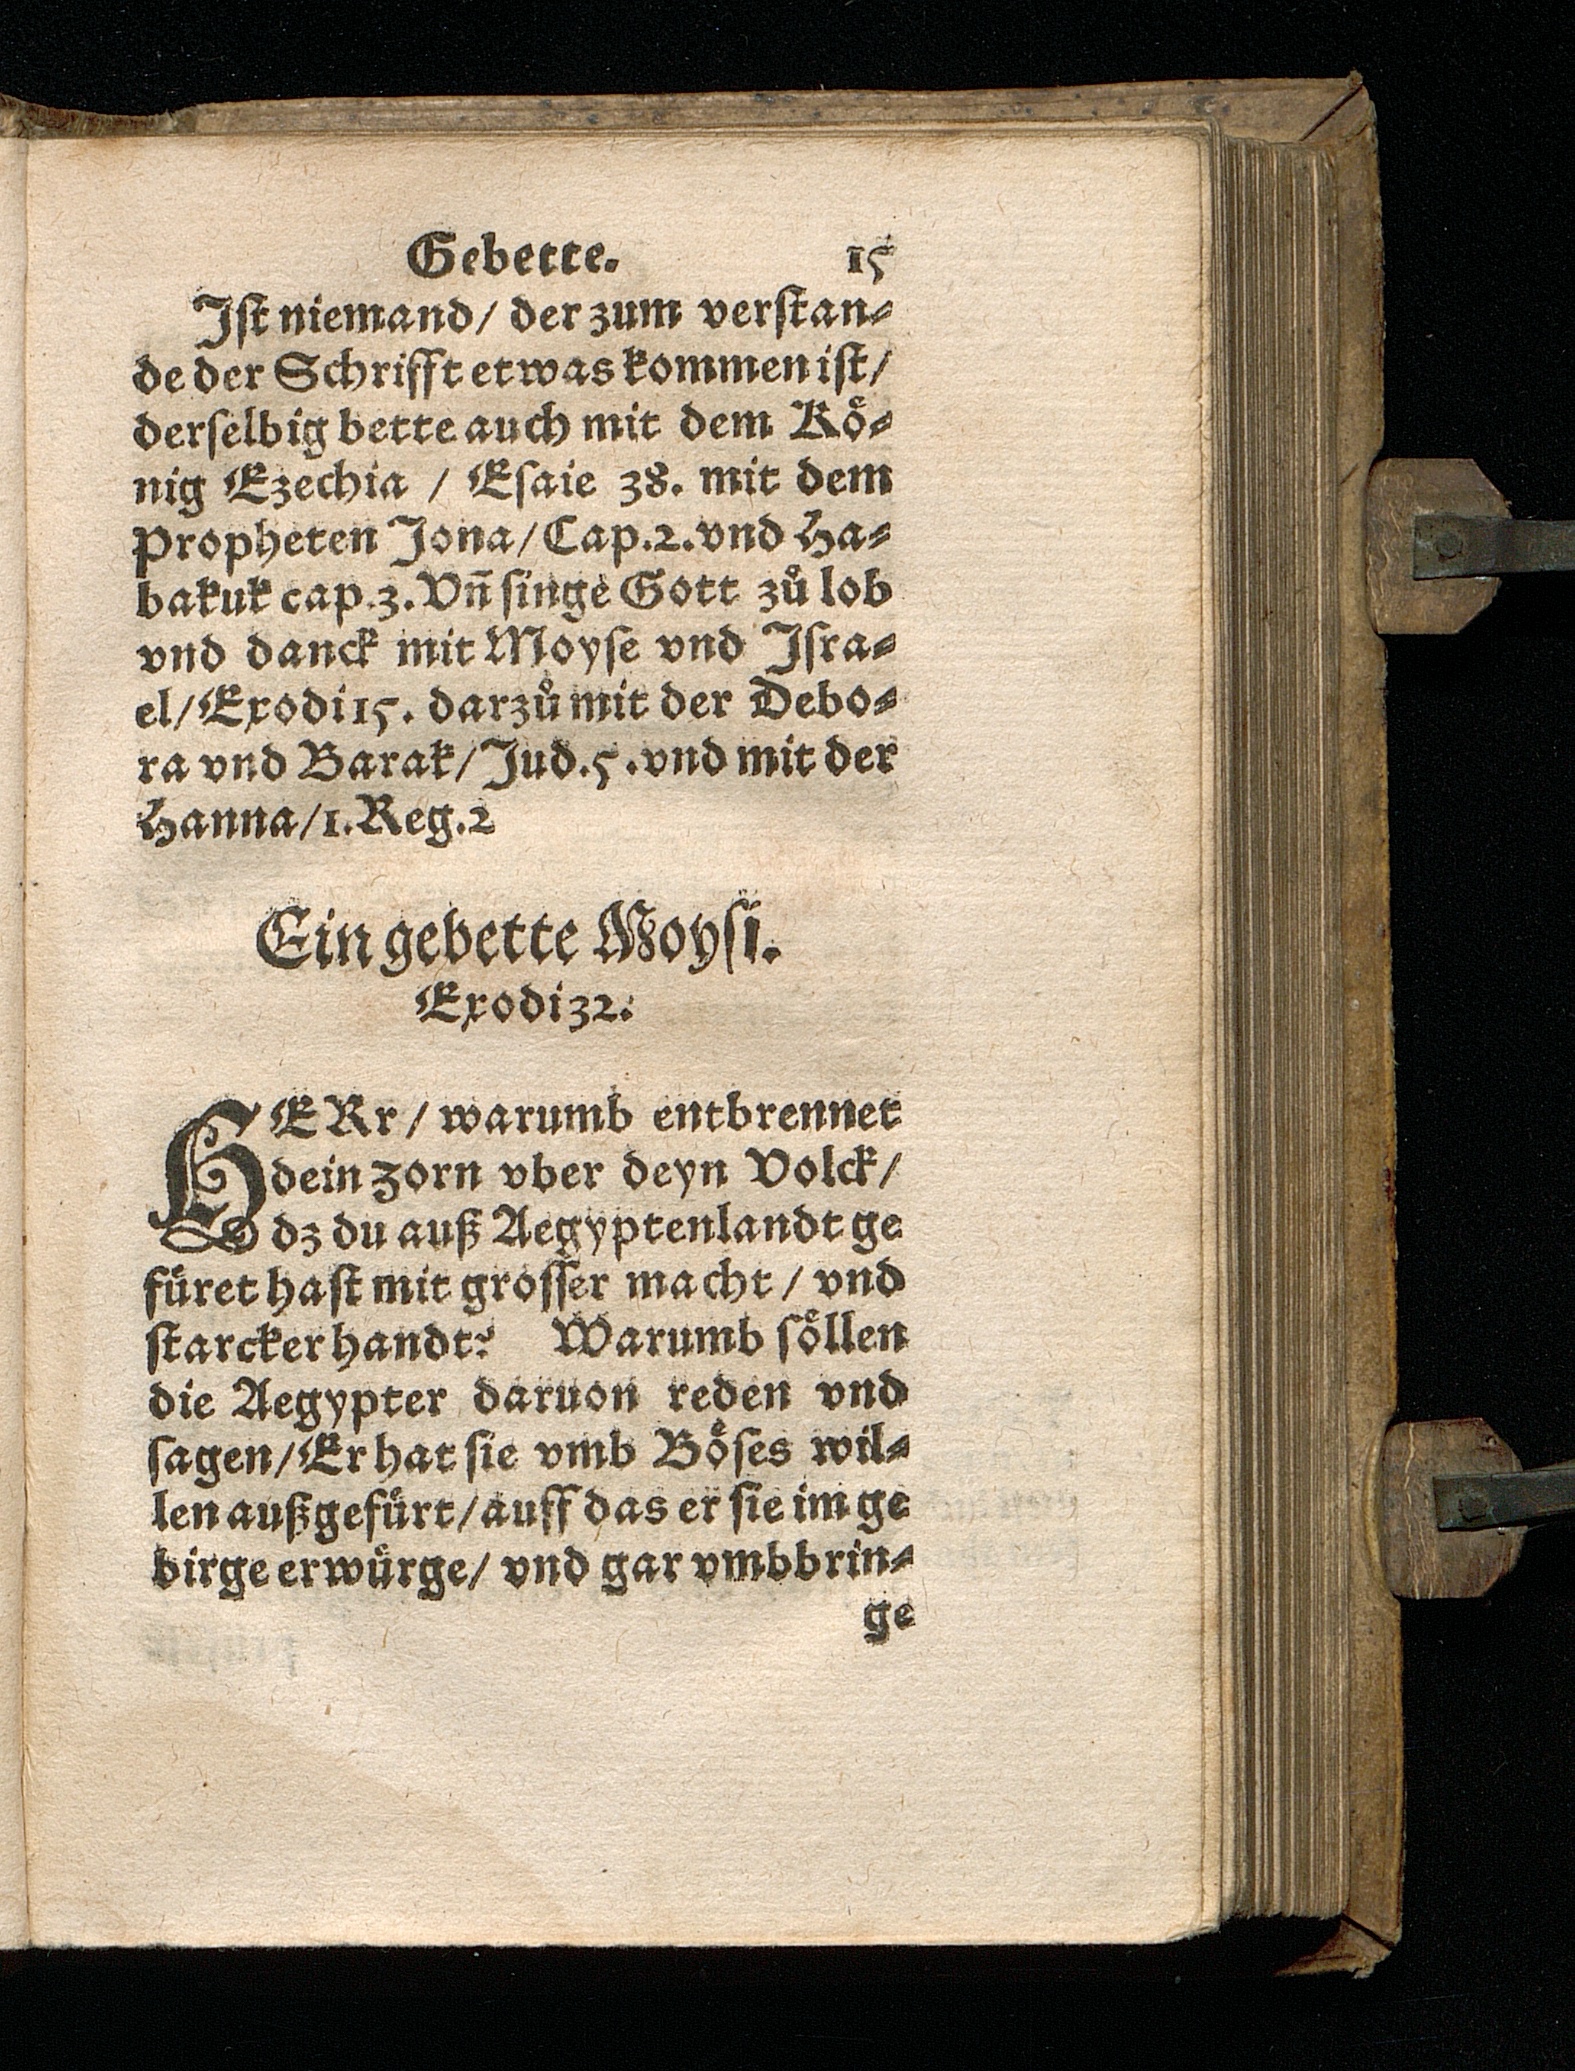 Gebette. 15
Jſt niemand/ der zum verſtan⸗
de der Schrifft etwas kommen iſt/
derſelbig bette auch mit dem Koͤ⸗
nig Ezechia / Eſaie 38. mit dem
Propheten Jona/Cap.2.vnd Ha⸗
bakuk cap.3. Vñ ſinge Gott zů lob
vnd danck mit Moyſe vnd Jſra⸗
el/Exodi 15. darzů mit der Debo⸗
ra vnd Barak/Jud.5.vnd mit der
Hanna/1.Reg.2
Ein gebette Moyſi.
Exodi 32.
HERr/ warumb entbrennet
dein zorn vber deyn Volck/
dz du auß Aegyptenlandt ge
füret haſt mit groſſer macht / vnd
ſtarcker handt? Warumb ſoͤllen
die Aegypter daruon reden vnd
ſagen/Er hat ſie vmb Boͤſes wil⸗
len außgefürt/auff das er ſie im ge
birge erwürge/ vnd gar vmbbrin⸗
ge